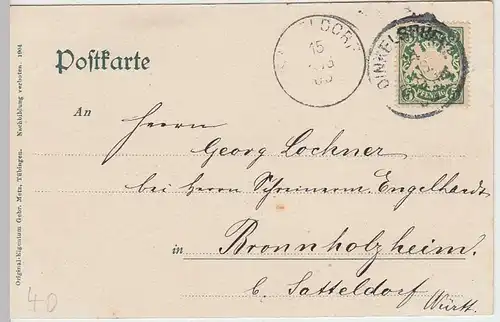 Postkarte
15
DINKELSBÜHL
5 PFENNIG
An Herrn
Georg Lochner
bei Herrn Schreinerm. Engelhardt
in Bronnholzheim.
b. Satteldorf
Württ.
40
Original-Eigentum Gebr. Metz, Tübingen. Nachbildung verboten. 1904